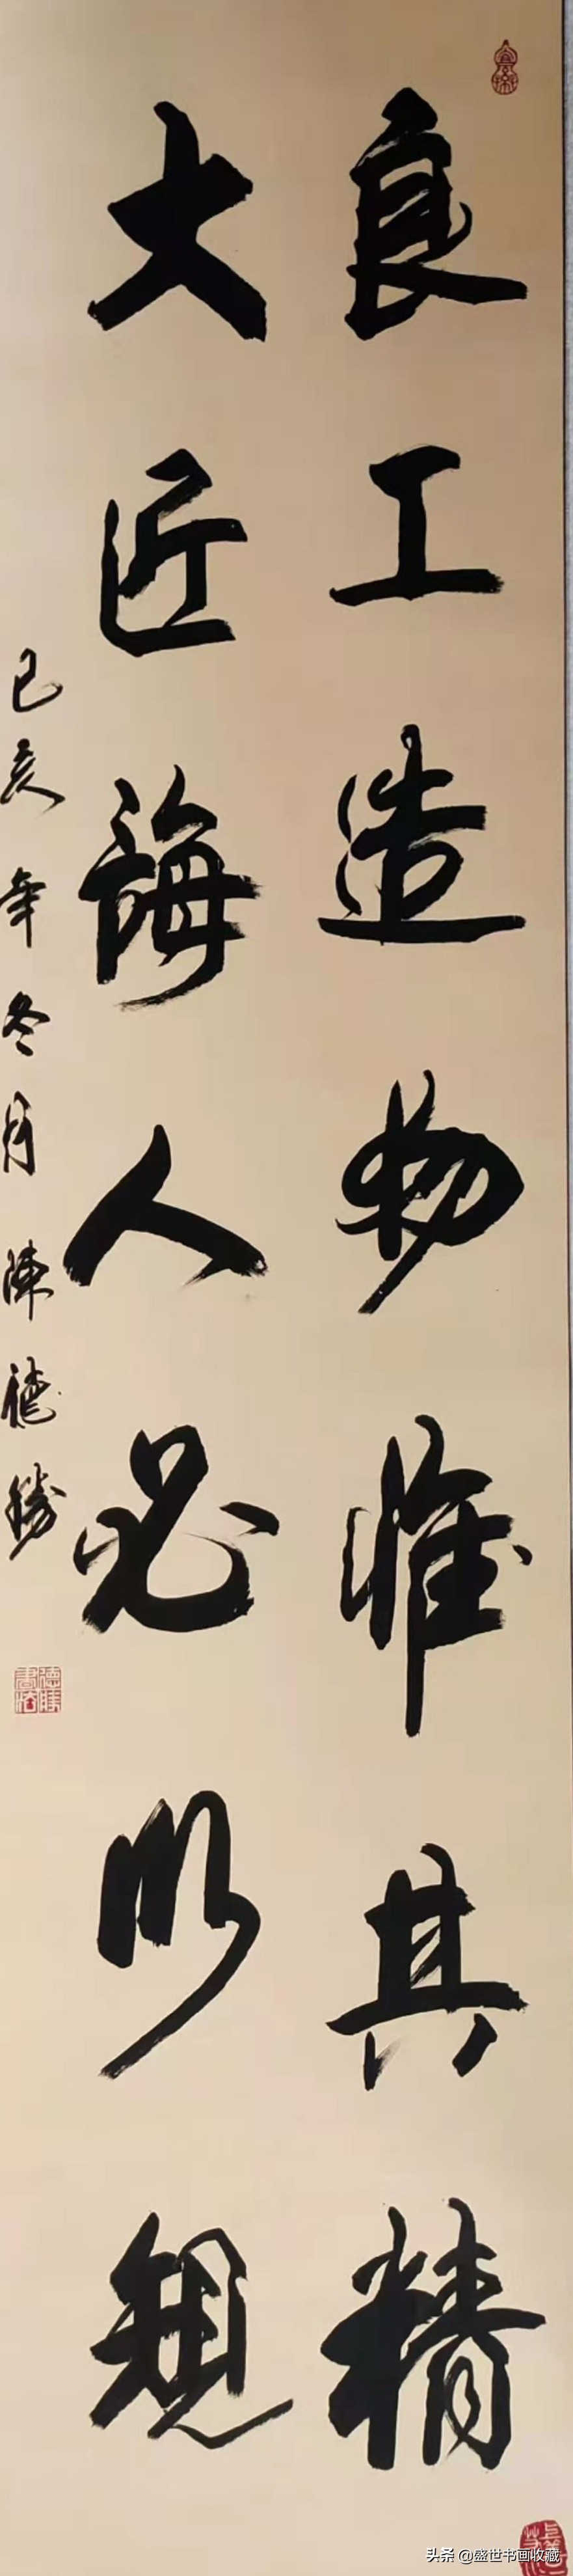 良工造物惟其精
大匠誨人必以規
己亥年冬月陳德勝
德勝書法
头条 @盛世书画收藏